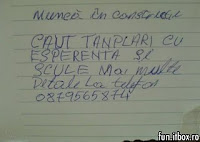 Muncă în construcții
CAUT TANPLARI CU
ESPERENTA SI
SCULE Mai multe
Detale La telefon
0879565874
fun.itbox.ro